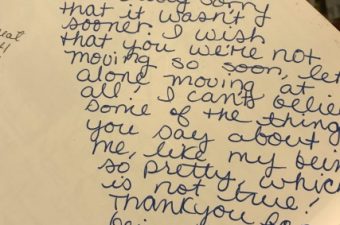 sorry
that it wasn't
sooner. I wish
that you we're not
moving so soon, let
alone moving at
all! I can't belie
some of the thing
you say about
me, like my bein
so pretty, which
is not true!
Thankyou for